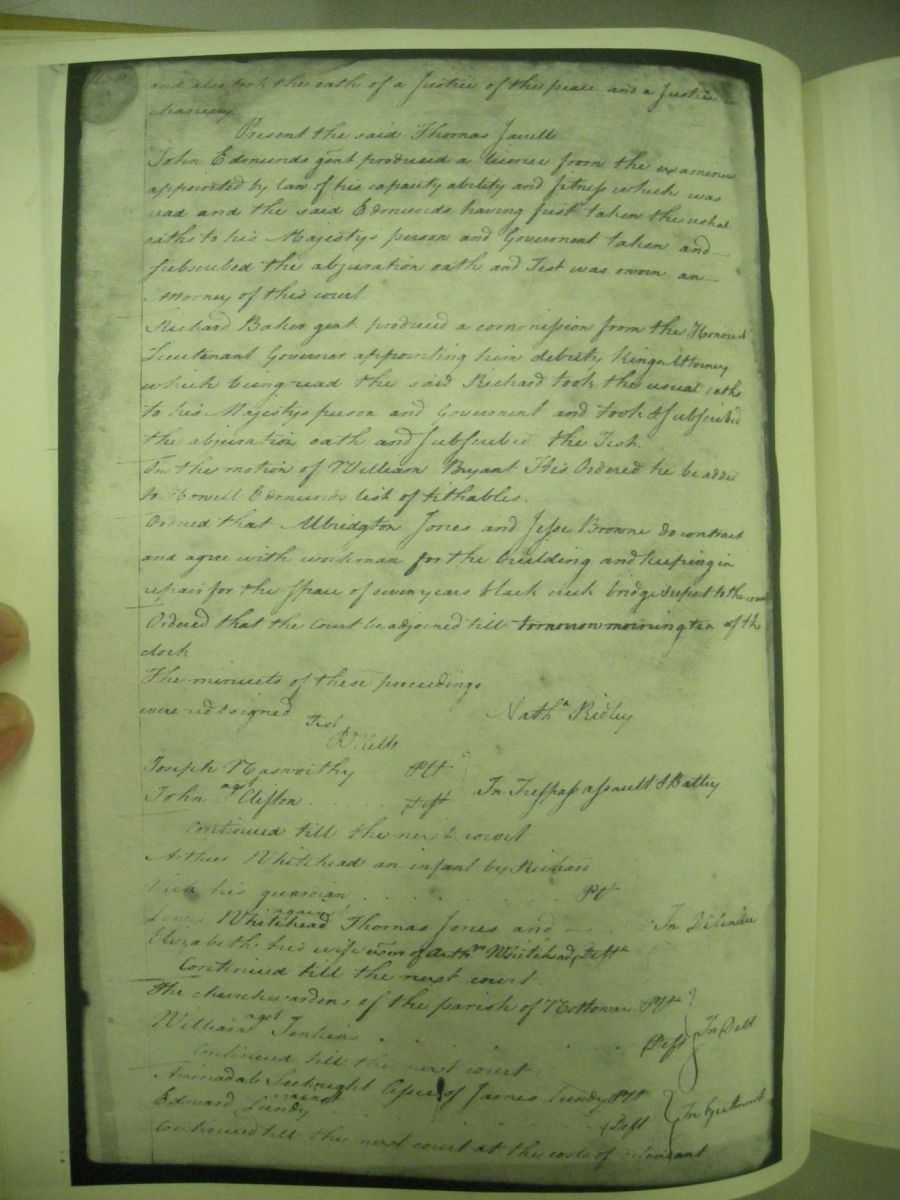 and also took the oath of a Justice of the peace and a Justice in
chancery
Present the said Thomas Jarrell
John Edmunds gent produced a licence from the examiners
appointed by law of his capacity ability and fitness which was
read and the said Edmunds having first taken the usual
oaths to his Majestys person and Government taken and
subscribed the abjuration oath and Test was sworn an
Attorney of this court
Richard Baker gent produced a commission from the Honourd
Lieutenant Governor appointing him debuty Kings Attorney
which being read the said Richard took the usual oaths
to his Majestys person and Government and took & subscribed
the abjuration oath and subscribed the Test.
On the motion of William Bryant It is Ordered he be added
to Howell Edmunds list of tithables.
Ordered that Albridgton Jones and Jesse Browne do contract
and agree with workman for the building and keeping in
repair for the space of seven years black creek bridge & report to the court
Ordered that the Court be adjourned till tomorrow morning ten of the
clock
The minuets of these proceedings
were read & signed Nathl Ridley
Test
R Kello
Joseph Nasworthy Plt
agst In Trespass assault & Battry
John Clifton Deft
Continued till the next court
Arthur Whitehead an infant by Richard
his guardian Plt
against
Whitehead Thomas Jones and In
Elizabeth his wife of Arthr Whitehead Defts
Continued till the next court.
The churchwardens of the parish of Nottoway Plts
agst In Debt
William Jenkins Deft
Continued till the next court
Aminadab Lessee of James Lundy Plt
against In Ejectment
Edward Lundy Deft
Continued till the next court at the costs of defendant